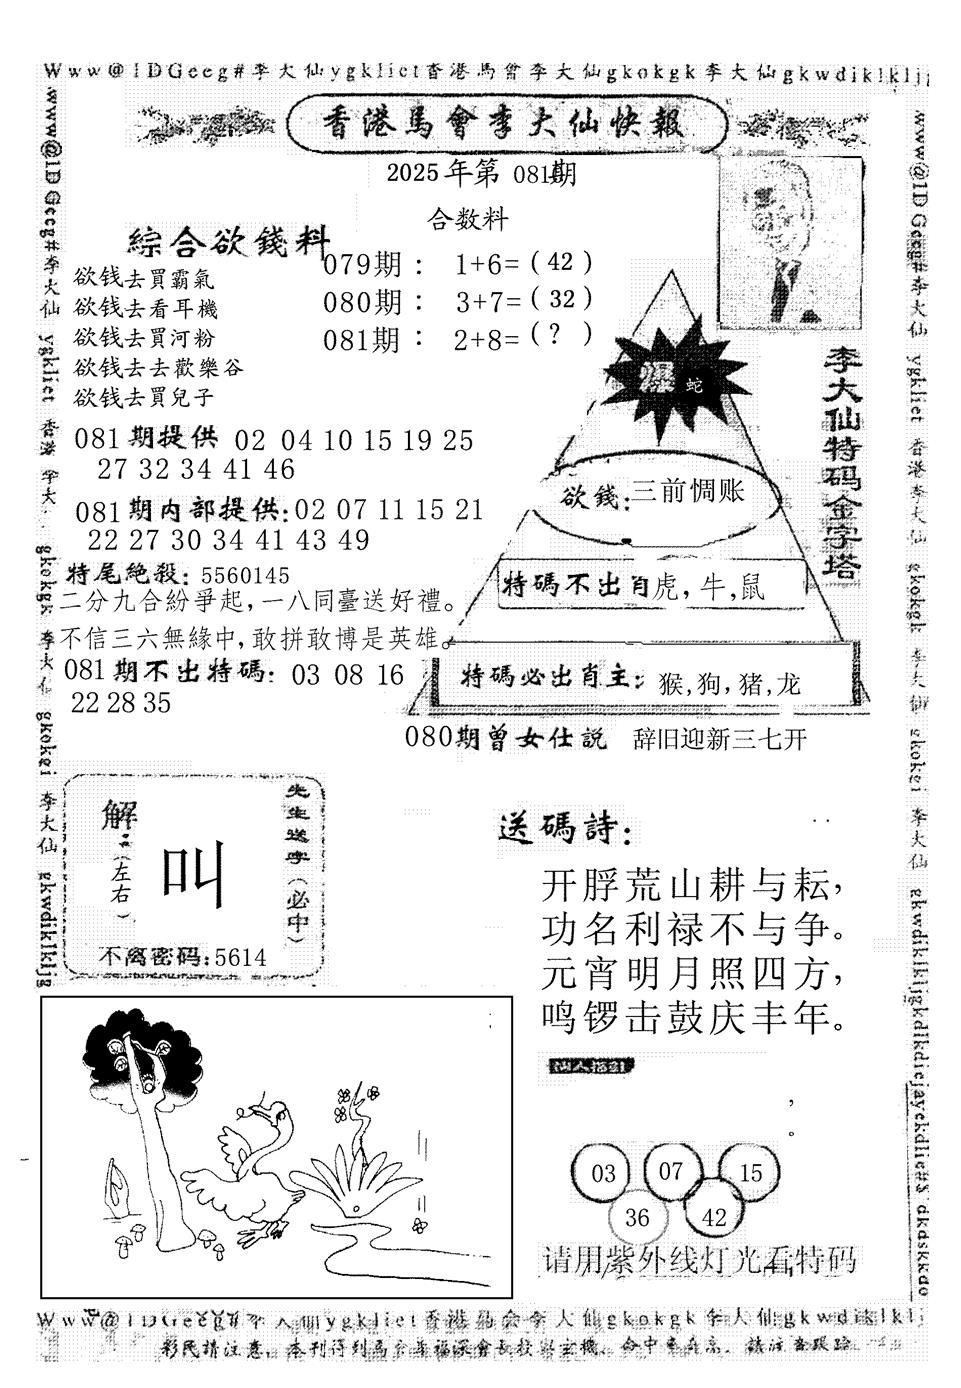 Www@1DGeeg#李大仙ygkliet香港馬會李大仙gkokgk李大仙gkwdiklkljg
香港馬會李大仙快報
2025年第 081期
合数料
綜合欲錢料
欲钱去買霸氣
欲钱去看耳機
欲钱去買河粉
欲钱去去歡樂谷
欲钱去買兒子
079期： 1+6=（42）
080期： 3+7=（32）
081期： 2+8=（?）
081期提供 02 04 10 15 19 25
27 32 34 41 46
081期内部提供:02 07 11 15 21
22 27 30 34 41 43 49
特尾絶殺: 5560145
二分九合紛爭起，一八同臺送好禮。
不信三六無緣中，敢拼敢博是英雄。
081期不出特碼: 03 08 16
22 28 35
李大仙特码金字塔
爆 蛇
欲錢:三前惆账
特碼不出肖虎，牛，鼠
特碼必出肖主: 猴，狗，猪，龙
080期曾女仕説 辞旧迎新三七开
解
:（左右）
叫
先生送字（必中）
不离密码:5614
送碼詩:
开脬荒山耕与耘，
功名利禄不与争。
元宵明月照四方，
鸣锣击鼓庆丰年。
，
。
03 07 15
36 42
请用紫外线灯光看特码
www@1DGeeg#李大仙 ygkliet 香港 李大 gkokgk 李大仙 gkokei 李大仙 gkwdiklkljg
www@1DGeeg#李大仙 ygkliet 香港李大仙 gkokgk 李大仙 gkokei 李大仙 gkwdiklkljgkdlkdiejayekdlie#$ dkdskkdo
Www@1DGeeg#李大仙ygkliet香港馬会李大仙gkokgk李大仙gkwdiklklj